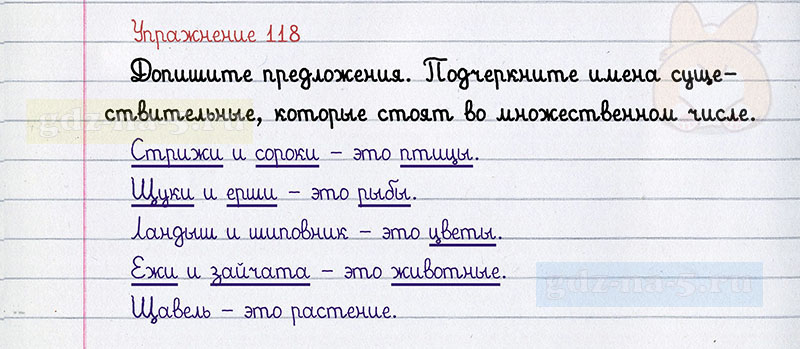 Упражнение 118
Допишите предложения. Подчеркните имена суще-
ствительные, которые стоят во множественном числе.
gdz-na-5.ru
Стрижи и сороки – это птицы.
Щуки и ерши – это рыбы.
Ландыш и шиповник – это цветы.
Ежи и зайчата – это животные.
gdz-na-5.ru
Щавель – это растение.